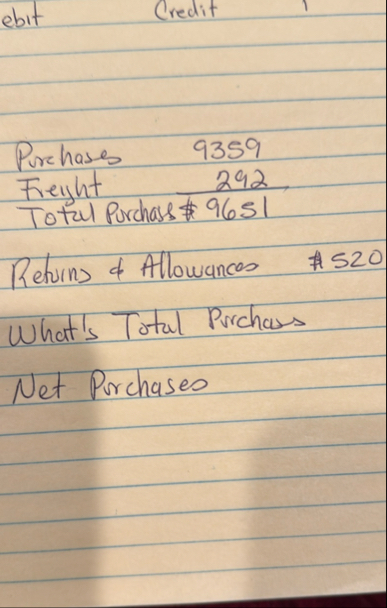 ebit Credit
Purchases 9359
Freyht 292
Total Purchases $ 9651
Returns & Allowances $ 520
What's Total Purchass
Net Purchases